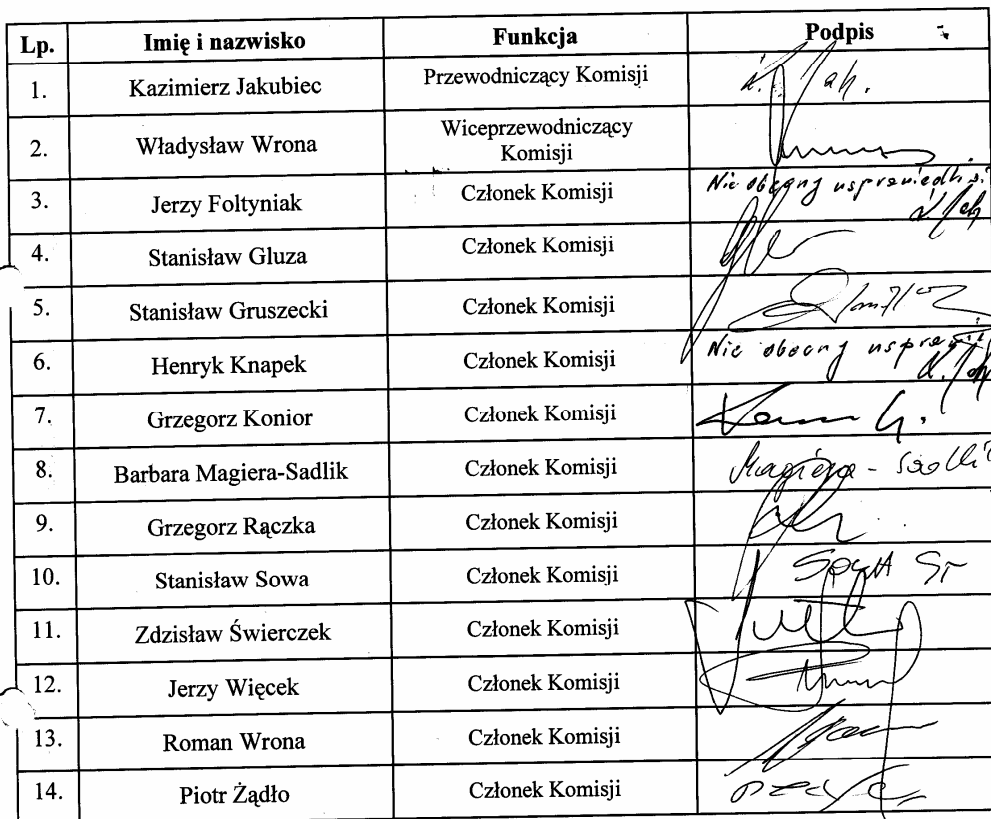 Lp. Imię i nazwisko Funkcja Podpis
1. Kazimierz Jakubiec Przewodniczący Komisji
2. Władysław Wrona Wiceprzewodniczący
Komisji
3. Jerzy Foltyniak Członek Komisji Nie obecny
4. Stanisław Gluza Członek Komisji
5. Stanisław Gruszecki Członek Komisji
6. Henryk Knapek Członek Komisji Nie obecny
7. Grzegorz Konior Członek Komisji
8. Barbara Magiera-Sadlik Członek Komisji
9. Grzegorz Rączka Członek Komisji
10. Stanisław Sowa Członek Komisji
11. Zdzisław Świerczek Członek Komisji
12. Jerzy Więcek Członek Komisji
13. Roman Wrona Członek Komisji
14. Piotr Żądło Członek Komisji